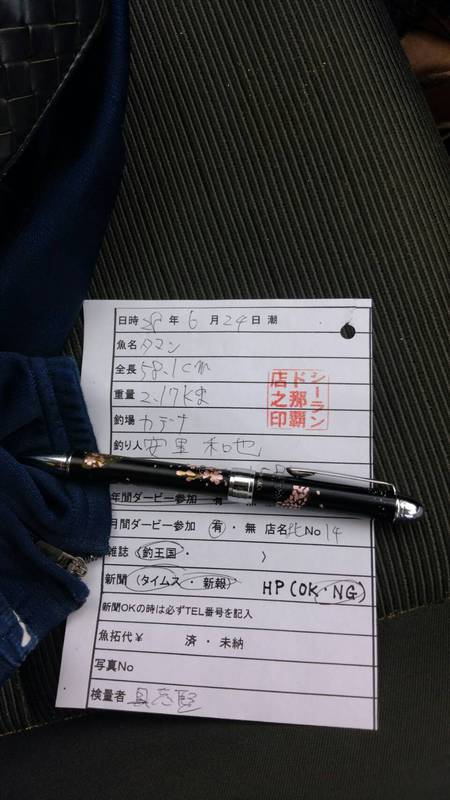 日時 28 年 6 月 24 日 潮
魚名 タマン
全長 58.1cm
重量 2.17kg
釣場 カデナ
シーラン
ド那覇
店之印
釣り人 安里 和也
年間ダービー参加 有
月間ダービー参加 有・無 店名 北 No 14
雑誌 (釣王国・ )
新聞 (タイムス・新報) HP(OK・NG)
新聞OKの時は必ずTEL番号を記入
魚拓代¥ 済・未納
写真No
検量者